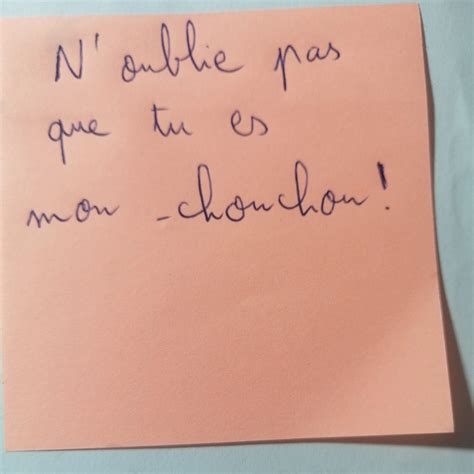 N'oublie pas
que tu es
mon chouchou!